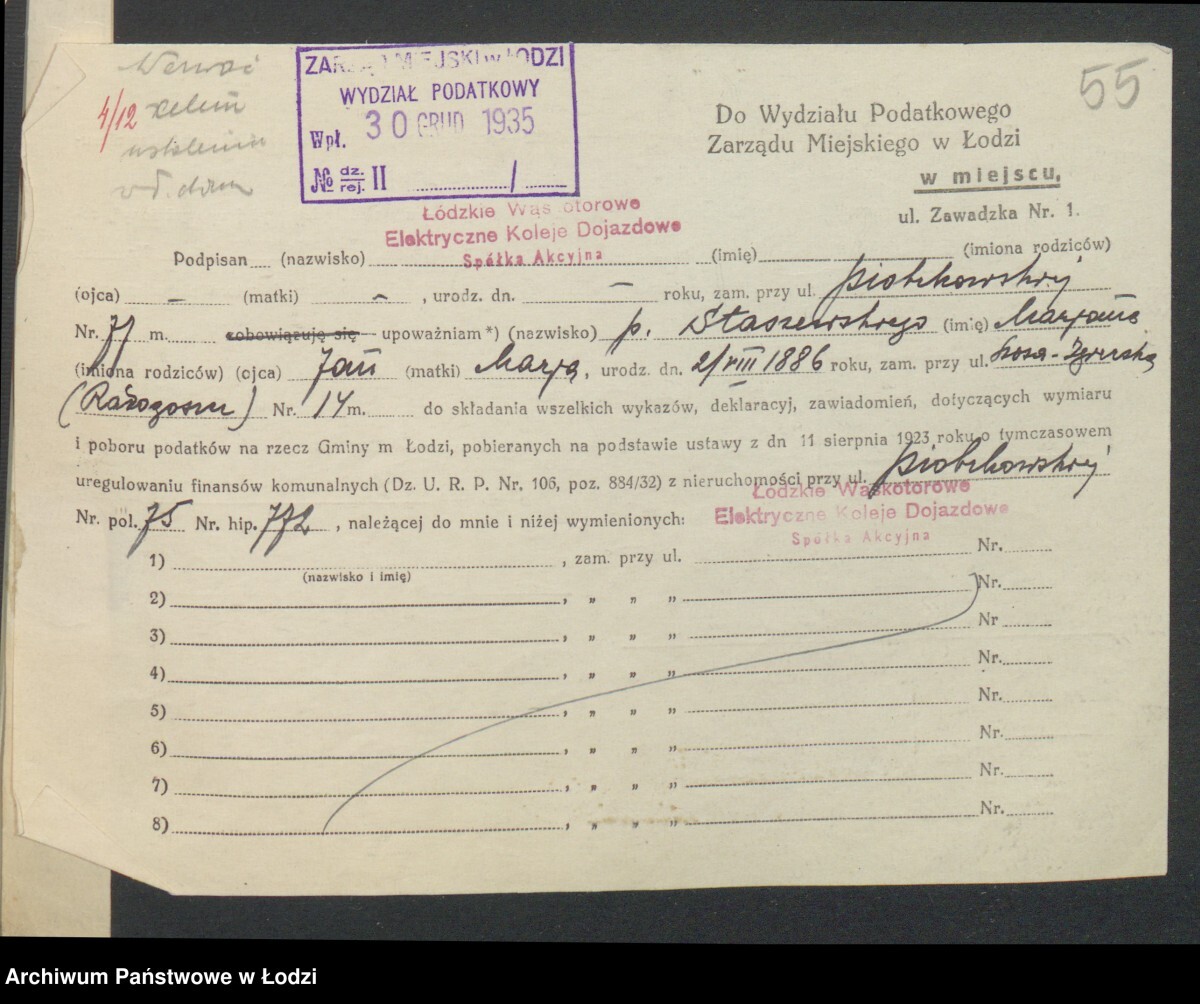 55
4/12
ZARZĄD MIEJSKI w ŁODZI
WYDZIAŁ PODATKOWY
Wpł. 30 GRUD 1935
№ dz./rej. II ......... / ......
Do Wydziału Podatkowego
Zarządu Miejskiego w Łodzi
w miejscu,
ul. Zawadzka Nr. 1.
Łódzkie Wąskotorowe
Elektryczne Koleje Dojazdowe
Spółka Akcyjna
Podpisan.... (nazwisko) (imię) (imiona rodziców)
(ojca) – (matki) – , urodz. dn. – roku, zam. przy ul. Piotrkowskiej
Nr. 77 m. zobowiązuję się upoważniam *) (nazwisko) p. Staszewskiego (imię) Marjana
(imiona rodziców) (ojca) Jan (matki) Marja, urodz. dn. 2/VIII 1886 roku, zam. przy ul. Szosa-Zgierska
(Radogoszcz) Nr. 14 m. do składania wszelkich wykazów, deklaracyj, zawiadomień, dotyczących wymiaru
i poboru podatków na rzecz Gminy m Łodzi, pobieranych na podstawie ustawy z dn 11 sierpnia 1923 roku o tymczasowem
uregulowaniu finansów komunalnych (Dz. U. R. P. Nr. 106, poz. 884/32) z nieruchomości przy ul. Piotrkowskiej
Łódzkie Wąskotorowe
Elektryczne Koleje Dojazdowe
Spółka Akcyjna
Nr. pol. 75 Nr. hip. 772, należącej do mnie i niżej wymienionych:
1) , zam. przy ul. Nr.
(nazwisko i imię)
2) , „ „ „ Nr.
3) , „ „ „ Nr
4) , „ „ „ Nr.
5) , „ „ „ Nr.
6) , „ „ „ Nr.
7) , „ „ „ Nr.
8) , „ „ „ Nr.
Archiwum Państwowe w Łodzi